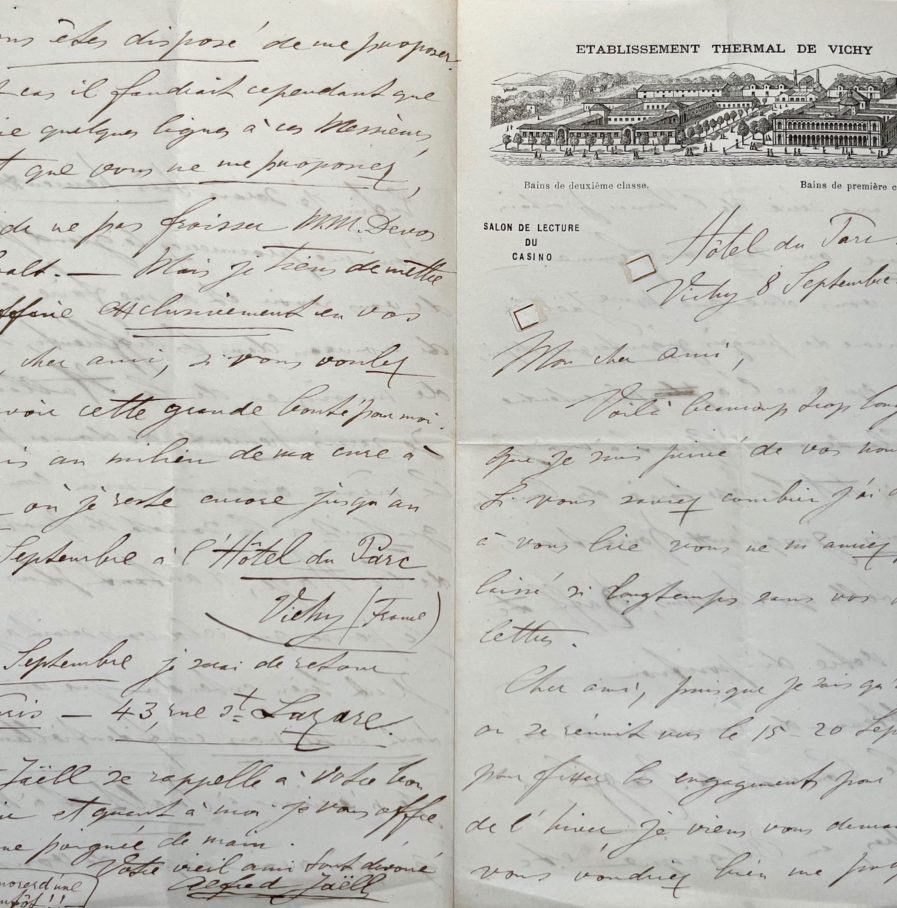 ETABLISSEMENT THERMAL DE VICHY
Bains de deuxième classe.
Bains de première c
SALON DE LECTURE
DU
CASINO
Hôtel du Parc
Vichy 8 Septembre
Mon cher ami,
Voilà beaucoup trop long
que je suis privé de vos nou
Si vous saviez combien j'ai
à vous lire vous ne m'auriez
laissé si longtemps sans vos
lettres.
Cher ami, puisque je sais qu'
on se réunit vers le 15-20 Sep
pour fixer les engagements pour
de l'hiver je viens vous deman
vous voudriez bien me pro
ous êtes disposé de me proposer.
cas il faudrait cependant que
quelques lignes à ces Messieurs
que vous ne me proposiez,
de ne pas froisser MM. Devos
alt. — Mais je tiens de mettre
affaire exclusivement en vos
, cher ami, si vous voulez
voir cette grande bonté pour moi.
is au milieu de ma cure à
où je reste encore jusqu'au
Septembre à l'Hôtel du Parc
Vichy (France)
Septembre je serai de retour
ris — 43, rue St. Lazare.
Jaëll se rappelle à votre bon
et quant à moi je vous offre
ne poignée de main.
Votre vieil ami tout dévoué
Alfred Jaëll
d'une
tôt!!